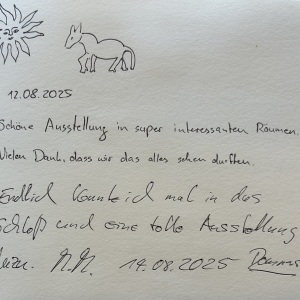 12.08.2025
Schöne Ausstellung in super interessanten Räumen.
Vielen Dank, dass wir das alles sehen durften.
Endlich konnte ich mal in das
Schloß und eine tolle Ausstellung
14.08.2025